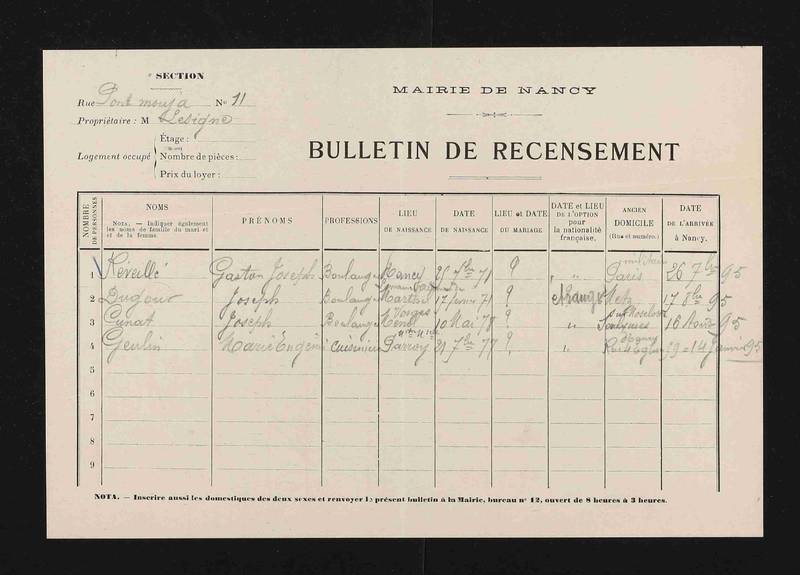 SECTION
Rue Pont mouja No 11
Propriétaire : M Lesigne
Logement occupé
Étage :
Nombre de pièces :
Prix du loyer :
MAIRIE DE NANCY
BULLETIN DE RECENSEMENT
NOMBRE DE PERSONNES
NOMS
NOTA. — Indiquer également
les noms de famille du mari et
et de la femme.
PRÉNOMS
PROFESSIONS
LIEU
DE NAISSANCE
DATE
DE NAISSANCE
LIEU et DATE
DU MARIAGE
DATE et LIEU
DE L'OPTION
pour
la nationalité
française.
ANCIEN
DOMICILE
(Rue et numéro.)
DATE
DE L'ARRIVÉE
à Nancy.
militaire
1 Réveillé Gaston Joseph Boulanger Nancy 7bre 71 ? " " Paris 26 7bre 95
2 Dugour Joseph Boulang 17 janvier 71 ? étranger Metz 17 8bre 95
Vosges sur Moselotte
3 Cunat Joseph Boulanger 10 Mai 78 ? " 16 Août 95
4 Geulin Marie Eugénie Cuisinière Parroy 21 7bre 77 ? " 14 Janvier 95
5
6
7
8
9
NOTA. — Inscrire aussi les domestiques des deux sexes et renvoyer le présent bulletin à la Mairie, bureau no 12, ouvert de 8 heures à 3 heures.